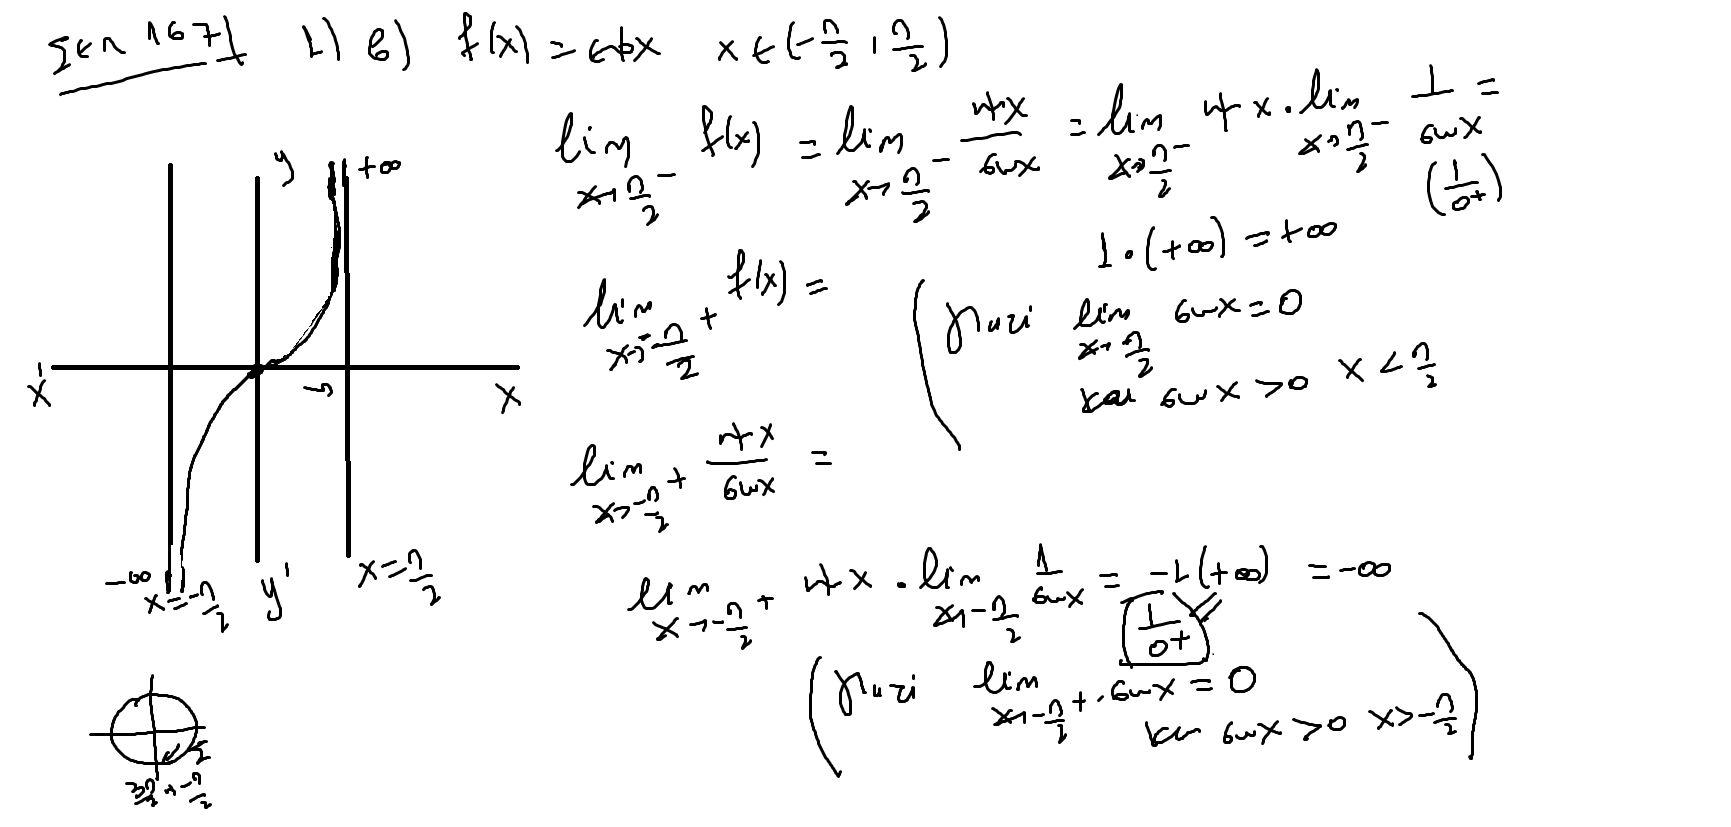 Σελ 167 1) β) f(x) = εφx x ∈ (-π/2, π/2)
lim x→π/2⁻ f(x) = lim x→π/2⁻ ημx/συνx = lim x→π/2⁻ ημx · lim x→π/2⁻ 1/συνx =
(1/0⁺)
1·(+∞) = +∞
(γιατί lim x→π/2 συνx = 0
και συνx > 0 x < π/2
lim x→-π/2⁺ f(x) =
lim x→-π/2⁺ ημx/συνx =
lim x→-π/2⁺ ημx · lim x→-π/2 1/συνx = -1(+∞) = -∞
1/0⁺
(γιατί lim x→-π/2⁺ συνx = 0
και συνx > 0 x > -π/2)
y
+∞
x'
x
-∞
x = -π/2
y'
x = π/2
3π/2 → -π/2